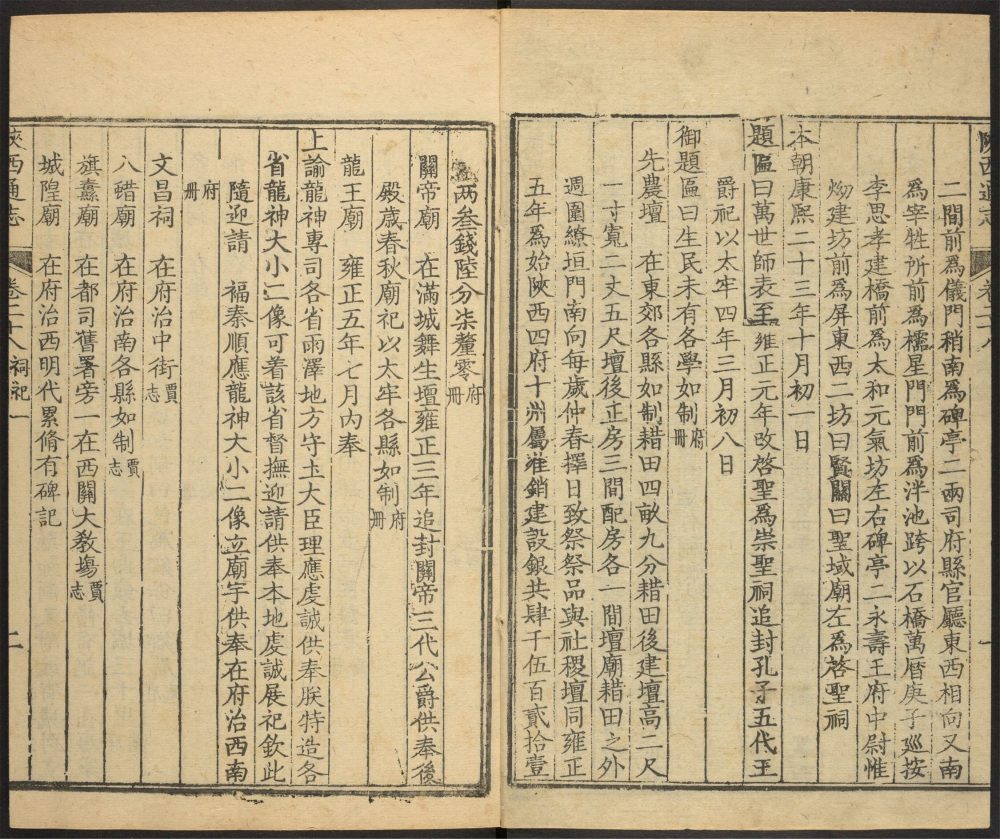 陝西通志 卷二十八 一
二間前爲儀門稍南爲碑亭二兩司府縣官廳東西相向又南
爲宰牲所前爲櫺星門門前爲泮池跨以石橋萬曆庚子廵按
李思孝建橋前爲太和元氣坊左右碑亭二永壽王府中尉惟
㷌建坊前爲屏東西二坊曰賢關曰聖域廟左爲啓聖祠
本朝康熙二十三年十月初一日
題匾曰萬世師表至雍正元年改啓聖爲崇聖祠追封孔子五代王
爵祀以太牢四年三月初八日
御題匾曰生民未有各學如制府冊
先農壇 在東郊各縣如制耤田四畝九分耤田後建壇高二尺
一寸寬二丈五尺壇後正房三間配房各一間壇廟耤田之外
週圍繚垣門南向每歲仲春擇日致祭祭品與社稷壇同雍正
五年爲始陝西四府十州屬准銷建設銀共肆千伍百貳拾壹
兩叁錢陸分柒釐零府冊
關帝廟 在滿城舞生壇雍正三年追封關帝三代公爵供奉後
殿歲春秋廟祀以太牢各縣如制府冊
龍王廟 雍正五年七月內奉
上諭龍神專司各省雨澤地方守土大臣理應虔誠供奉朕特造各
省龍神大小二像可着該省督撫迎請供奉本地虔誠展祀欽此
隨迎請 福秦順應龍神大小二像立廟宇供奉在府治西南
府冊
文昌祠 在府治中街賈志
八醋廟 在府治南各縣如制賈志
旗纛廟 在都司舊署旁一在西關大教塲賈志
城隍廟 在府治西明代累脩有碑記
陝西通志 卷二十八 祠祀一 二